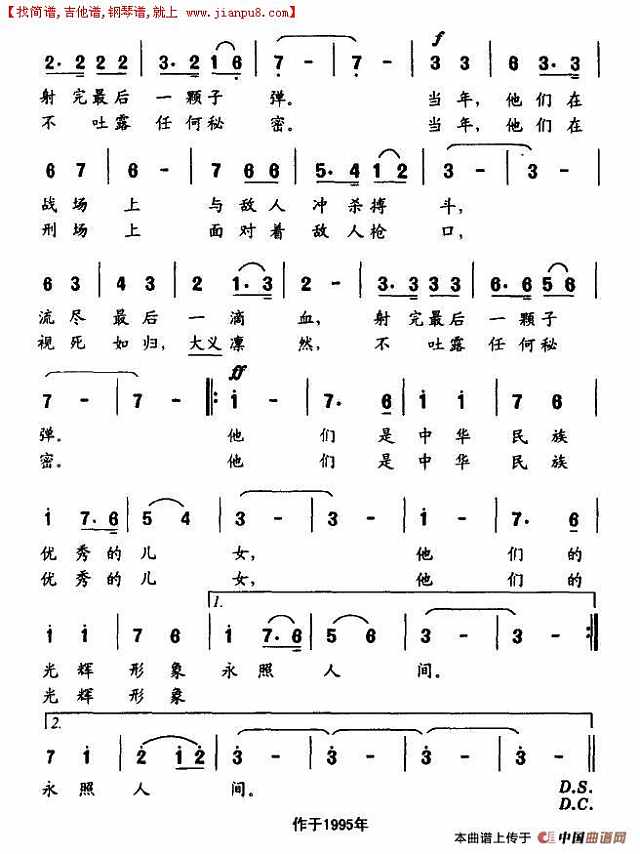 【找简谱,吉他谱,钢琴谱,就上 www.jianpu8.com】
f
2· 2 2 2 | 3· 2 1 6 | 7 - | 7 - | 3 3 | 6 3· 3
射完最后 一颗子 弹。 当年, 他们在
不吐露 任何秘 密。 当年, 他们在
6 7 | 6 - | 7 6 6 | 5· 4 1 2 | 3 - | 3 -
战场 上 与敌人 冲杀搏 斗,
刑场 上 面对着 敌人枪 口,
6 3 | 4 3 | 2 1· 3 | 2 - | 3· 3 3 3 | 6· 6 5 6
流尽 最后 一滴 血, 射完最后 一颗子
视死 如归, 大义凛 然, 不吐露 任何秘
ff
7 - | 7 - |: 1 - | 7· 6 | 1 1 | 7 6
弹。 他 们是 中华 民族
密。 他 们是 中华 民族
1 7· 6 | 5 4 | 3 - | 3 - | 1 - | 7· 6
优秀的 儿 女, 他 们的
优秀的 儿 女, 他 们的
1.
1 1 | 7 6 | 1 7· 6 | 5 6 | 3 - | 3 - :|
光辉 形象 永照 人 间。
光辉 形象
2.
7 1 | 2 1 2 | 3 - | 3 - | 3 - | 3 - ||
永照 人 间。 D.S.
D.C.
作于1995年
本曲谱上传于 中国曲谱网